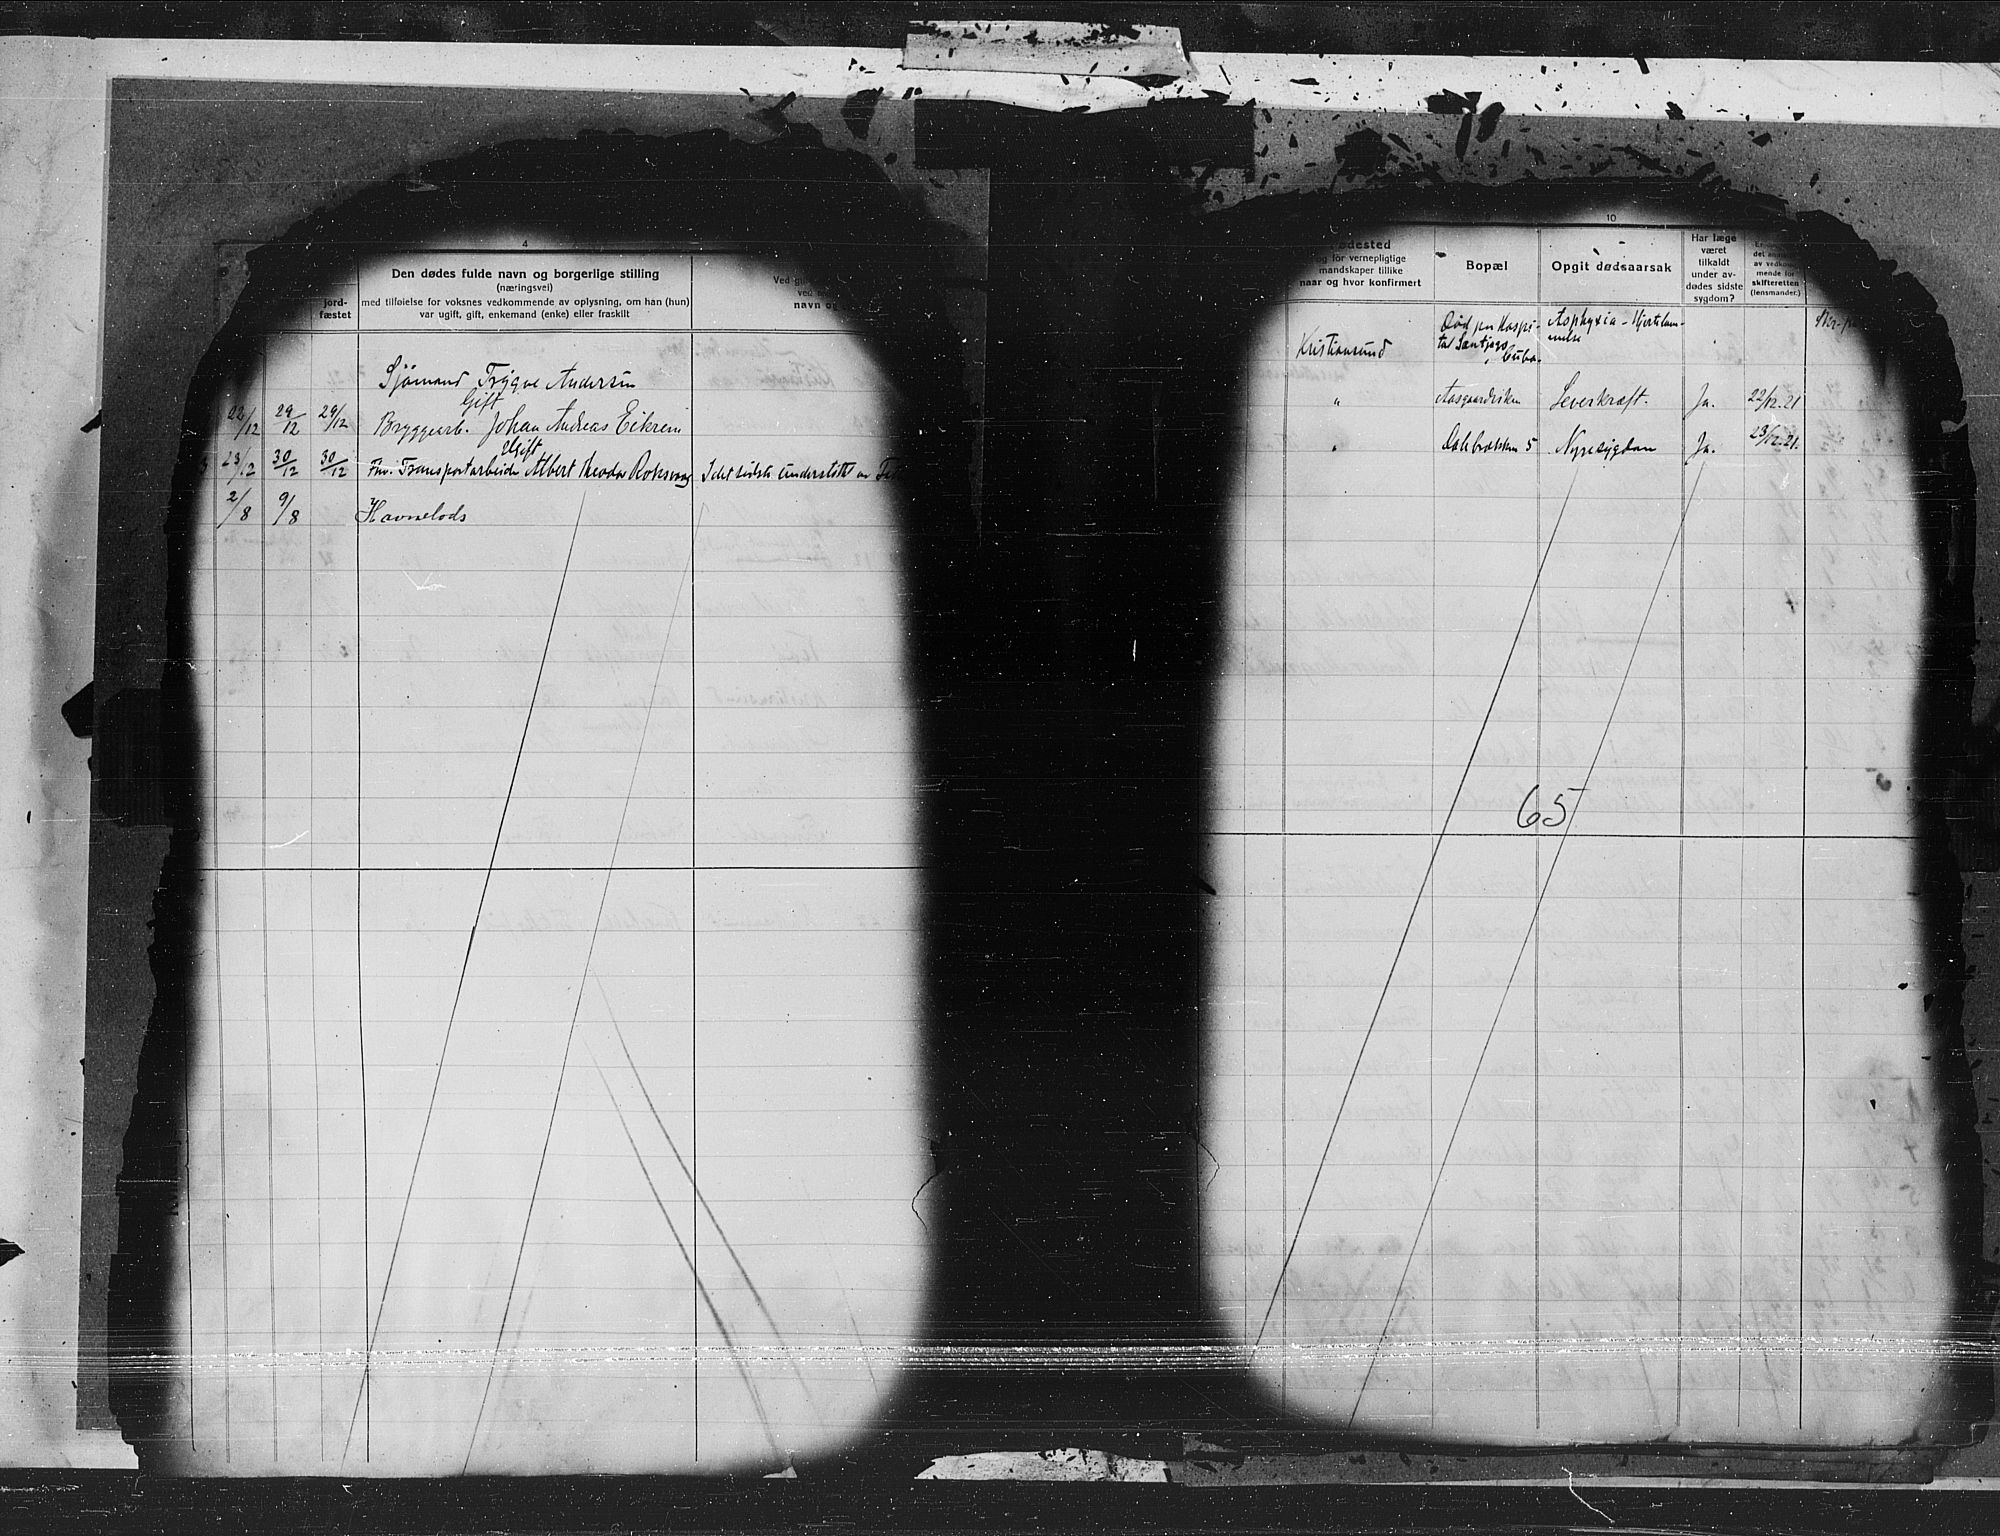 4
jord-
fæstet
Den dødes fulde navn og borgerlige stilling
(næringsvei)
med tilføielse for voksnes vedkommende av oplysning, om han (hun)
var ugift, gift, enkemand (enke) eller fraskilt
navn og
Sjømand Trygve Andersen
Gift
22/12 29/12 29/12 Bryggearb. Johan Andreas Eikrem
Ugift
23/12 30/12 30/12 Fhv. Transportarbeider Albert Theodor Roksvaag I det sidste understøttet av
2/8 9/8 Havnelods
10
ødested
og for vernepligtige
mandskaper tillike
naar og hvor konfirmert
Bopæl
Opgit dødsaarsak
Har læge
været
tilkaldt
under av-
dødes sidste
sygdom?
av vedkom-
mende for
skifteretten
(lensmander.)
Kristiansund
Død paa Hospi-
tal Santjago
Cuba.
Asphyxia - Hjertelam-
melse
" Aasgaardviken Leverkræft. Ja. 22/12.21
" Dalebrækken 5 Nyresygdom Ja. 23/12.21.
65